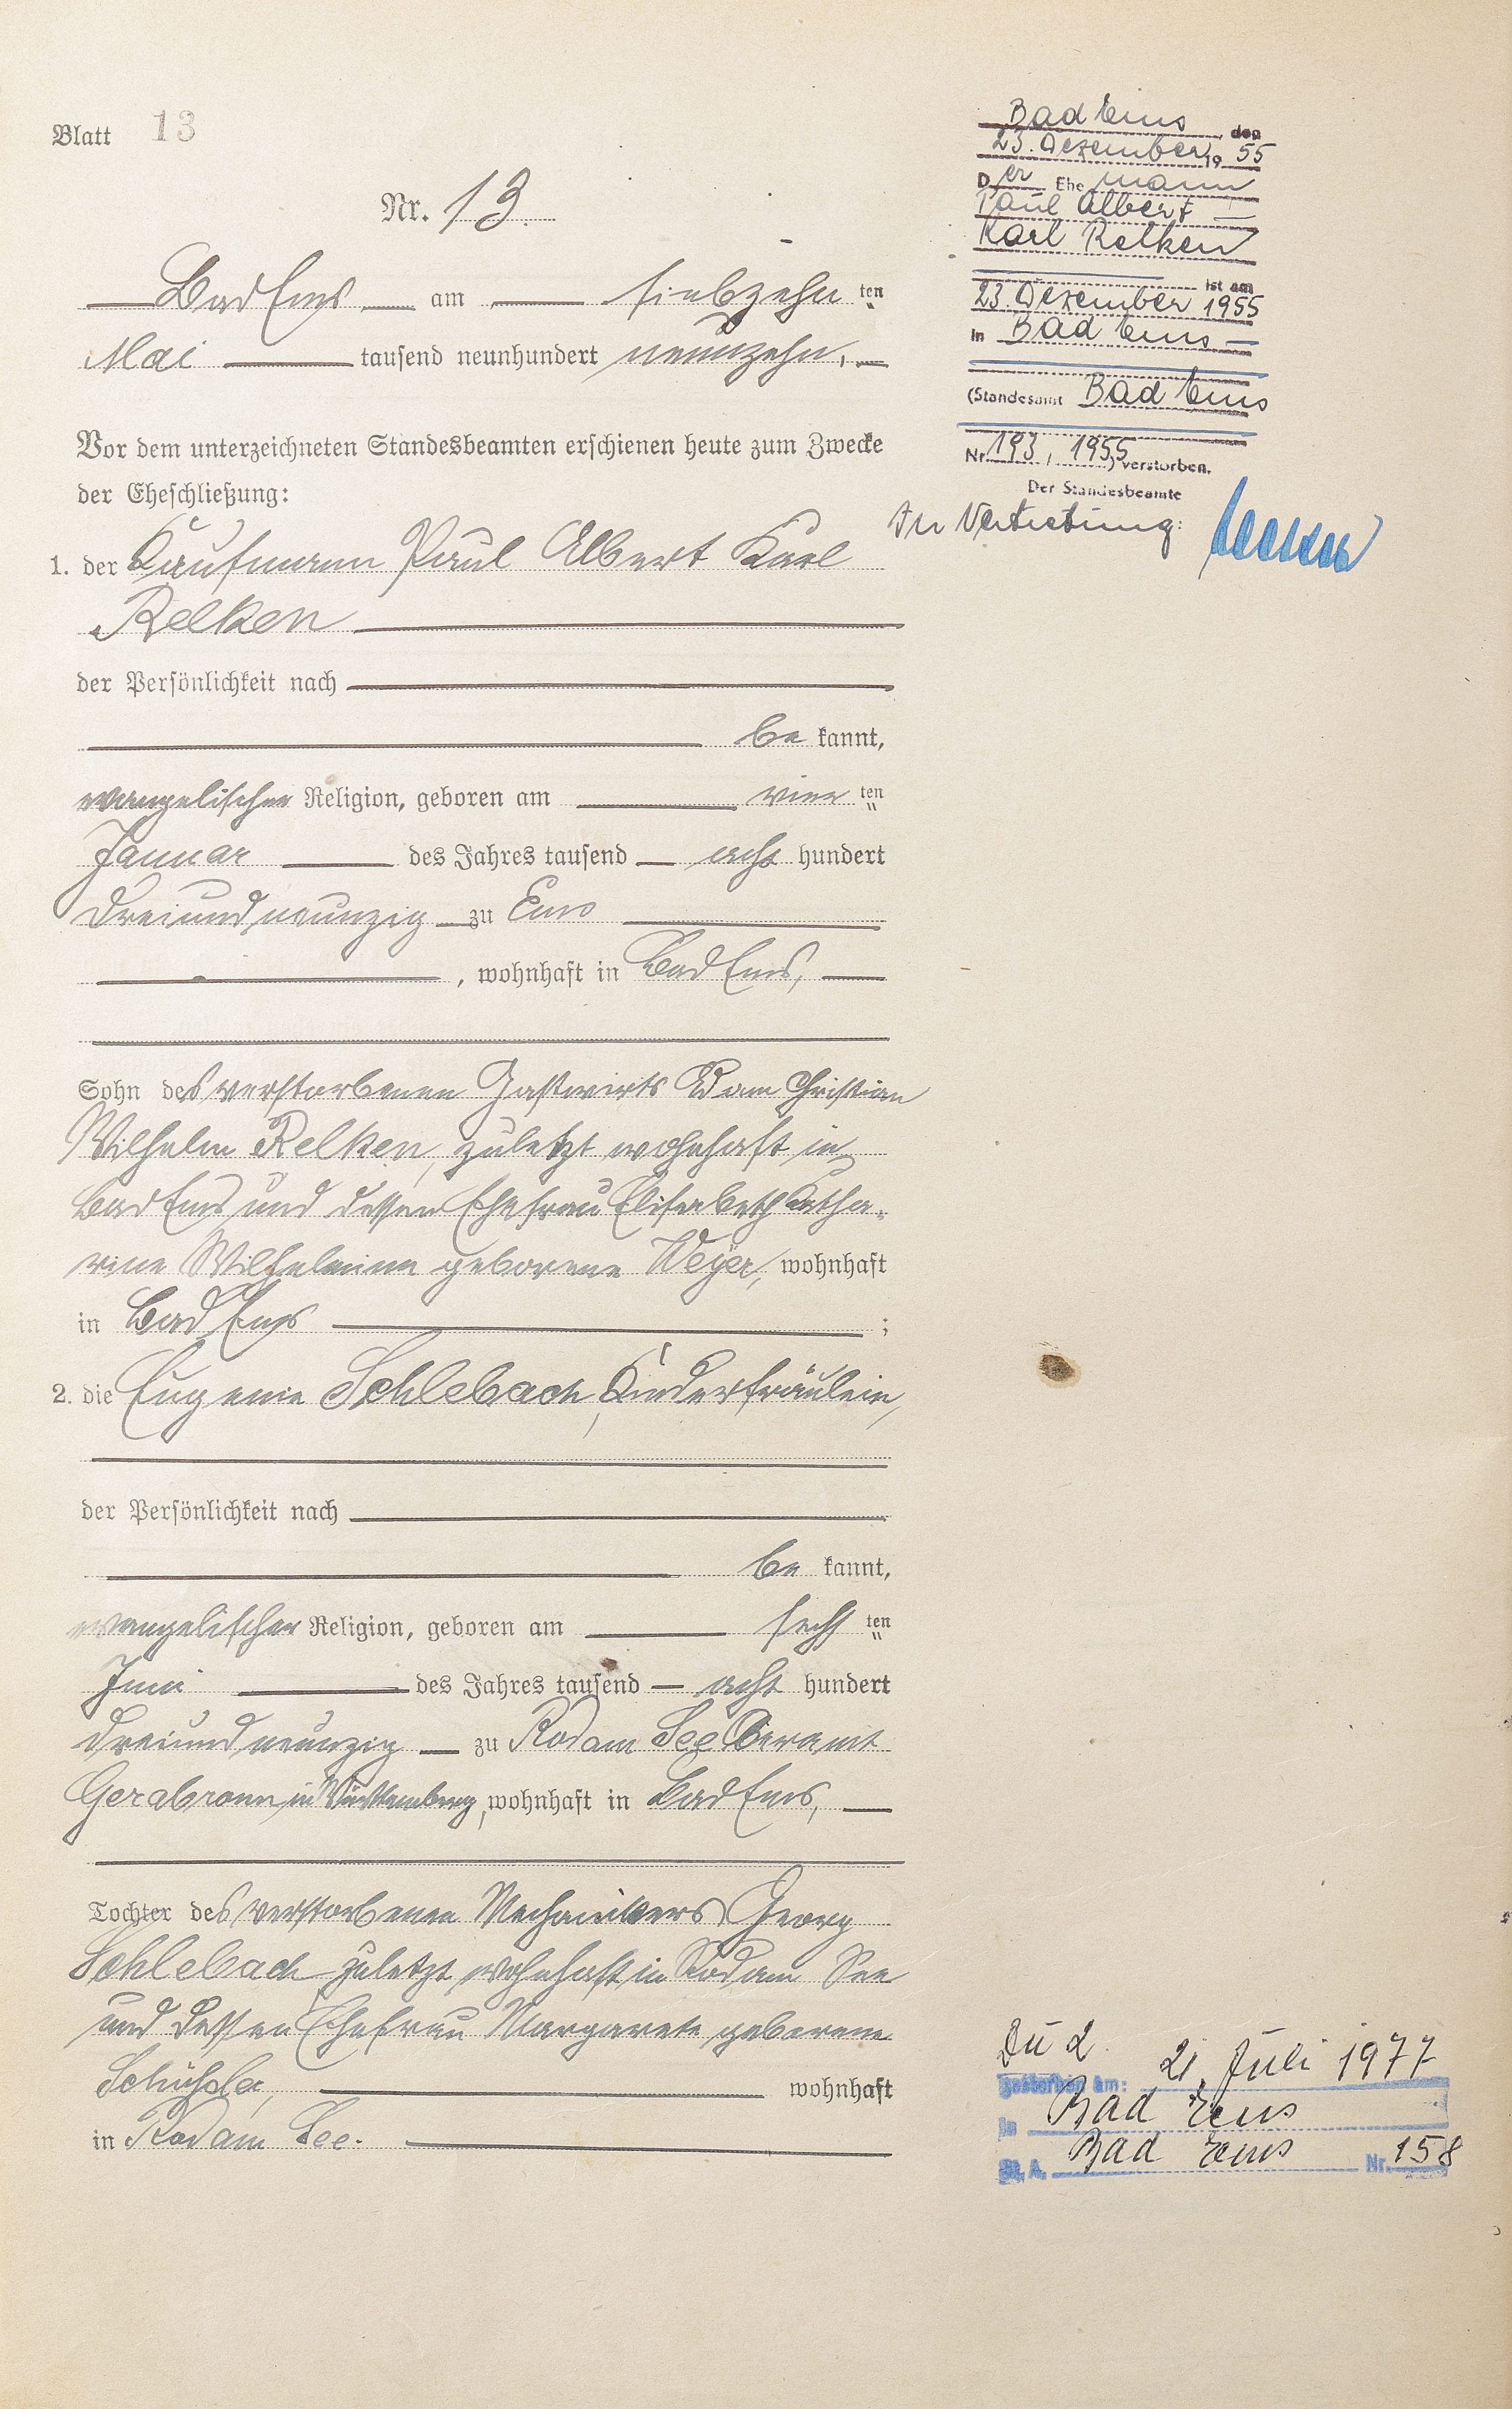 Blatt 13
Nr. 13.
Bad Ems am siebzehnten
Mai tausend neunhundert neunzehn,
Vor dem unterzeichneten Standesbeamten erschienen heute zum Zwecke
der Eheschließung:
1. der Kaufmann Paul Albert Karl
Relken
der Persönlichkeit nach
be kannt,
evangelischer Religion, geboren am vier ten
Januar des Jahres tausend acht hundert
dreiundneunzig zu Ems
, wohnhaft in Bad Ems,
Sohn des verstorbenen Gastwirts Adam Christian
Wilhelm Relken, zuletzt wohnhaft in
Bad Ems und dessen Ehefrau Elisabeth Katha-
rine Wilhelmine geborene Weyer, wohnhaft
in Bad Ems ;
2. die Eugenie Schlebach, Kinderfräulein,
der Persönlichkeit nach
be kannt,
evangelischer Religion, geboren am sechs ten
Juni des Jahres tausend acht hundert
dreiundneunzig zu Rod am See Oberamt
Gerabronn in Württemberg, wohnhaft in Bad Ems,
Tochter des verstorbenen Mechanikers Georg
Schlebach zuletzt wohnhaft in Rod am See
und dessen Ehefrau Margarete geborene
wohnhaft
in Rod am See.
Bad Ems, den
23. Dezember 19 55
Der Ehe mann
Paul Albert
Karl Relken
ist am
23. Dezember 1955
in Bad Ems
(Standesamt Bad Ems
Nr. 193, 1955) verstorben.
Der Standesbeamte
In Vertretung:
Zu 2.
gestorben am: 21. Juli 1977
in Bad Ems
St. A. Bad Ems Nr. 158